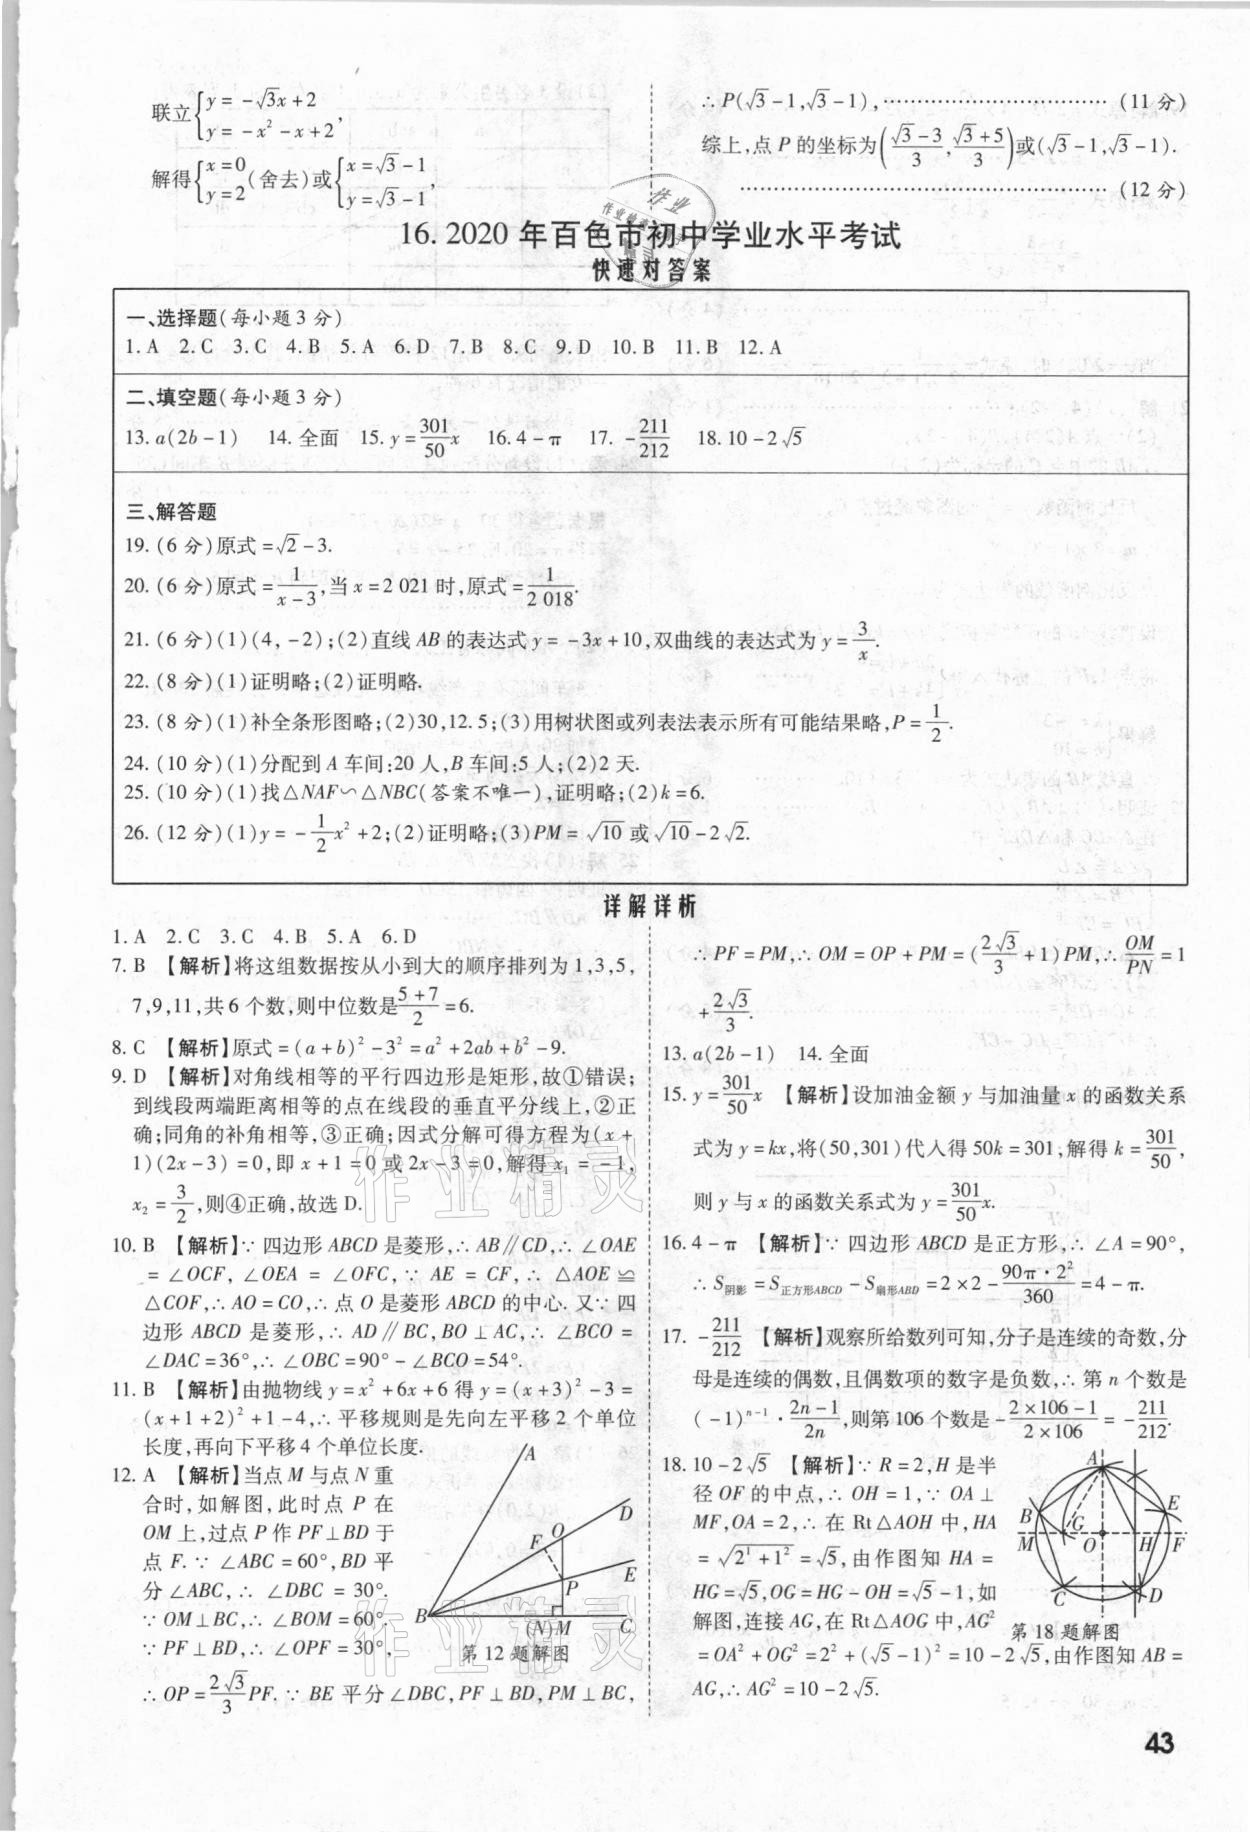 联立{y=-√3x+2
y=-x²-x+2,
解得{x=0
y=2(舍去)或{x=√3-1
y=√3-1,
∴P(√3-1,√3-1),……………………………(11分)
综上,点P的坐标为((√3-3)/3,(√3+5)/3)或(√3-1,√3-1).
……………………………………………(12分)
16. 2020年百色市初中学业水平考试
快速对答案
一、选择题(每小题3分)
1. A 2. C 3. C 4. B 5. A 6. D 7. B 8. C 9. D 10. B 11. B 12. A
二、填空题(每小题3分)
13. a(2b-1) 14. 全面 15. y=301/50 x 16. 4-π 17. -211/212 18. 10-2√5
三、解答题
19. (6分)原式=√2-3.
20. (6分)原式=1/(x-3),当x=2 021时,原式=1/2 018.
21. (6分)(1)(4,-2);(2)直线AB的表达式y=-3x+10,双曲线的表达式为y=3/x.
22. (8分)(1)证明略;(2)证明略.
23. (8分)(1)补全条形图略;(2)30,12.5;(3)用树状图或列表法表示所有可能结果略,P=1/2.
24. (10分)(1)分配到A车间:20人,B车间:5人;(2)2天.
25. (10分)(1)找△NAF∽△NBC(答案不唯一),证明略;(2)k=6.
26. (12分)(1)y=-1/2 x²+2;(2)证明略;(3)PM=√10或√10-2√2.
详解详析
1. A 2. C 3. C 4. B 5. A 6. D
7. B 【解析】将这组数据按从小到大的顺序排列为1,3,5,
7,9,11,共6个数,则中位数是(5+7)/2=6.
8. C 【解析】原式=(a+b)²-3²=a²+2ab+b²-9.
9. D 【解析】对角线相等的平行四边形是矩形,故①错误;
到线段两端距离相等的点在线段的垂直平分线上,②正
确;同角的补角相等,③正确;因式分解可得方程为(x+
1)(2x-3)=0,即x+1=0或2x-3=0,解得x₁=-1,
x₂=3/2,则④正确,故选D.
10. B 【解析】∵四边形ABCD是菱形,∴AB∥CD,∴∠OAE
=∠OCF,∠OEA=∠OFC,∵AE=CF,∴△AOE≌
△COF,∴AO=CO,∴点O是菱形ABCD的中心. 又∵四
边形ABCD是菱形,∴AD∥BC,BO⊥AC,∴∠BCO=
∠DAC=36°,∴∠OBC=90°-∠BCO=54°.
11. B 【解析】由抛物线y=x²+6x+6得y=(x+3)²-3=
(x+1+2)²+1-4,∴平移规则是先向左平移2个单位
长度,再向下平移4个单位长度.
12. A 【解析】当点M与点N重
合时,如解图,此时点P在
OM上,过点P作PF⊥BD于
点F.∵∠ABC=60°,BD平
分∠ABC,∴∠DBC=30°.
∵OM⊥BC,∴∠BOM=60°.
∵PF⊥BD,∴∠OPF=30°,
∴OP=2√3/3 PF.∵BE平分∠DBC,PF⊥BD,PM⊥BC,
A
D
O
F
E
P
B
(N)M
C
第12题解图
∴PF=PM,∴OM=OP+PM=(2√3/3+1)PM,∴OM/PN=1
+2√3/3.
13. a(2b-1) 14. 全面
15. y=301/50 x 【解析】设加油金额y与加油量x的函数关系
式为y=kx,将(50,301)代入得50k=301,解得k=301/50,
则y与x的函数关系式为y=301/50 x.
16. 4-π 【解析】∵四边形ABCD是正方形,∴∠A=90°,
∴S阴影=S正方形ABCD-S扇形ABD=2×2-90π·2²/360=4-π.
17. -211/212 【解析】观察所给数列可知,分子是连续的奇数,分
母是连续的偶数,且偶数项的数字是负数,∴第n个数是
(-1)ⁿ⁻¹·(2n-1)/2n,则第106个数是-(2×106-1)/(2×106)=-211/212.
18. 10-2√5 【解析】∵R=2,H是半
径OF的中点,∴OH=1,∵OA⊥
MF,OA=2,∴在Rt△AOH中,HA
=√(2¹+1²)=√5,由作图知HA=
HG=√5,OG=HG-OH=√5-1,如
解图,连接AG,在Rt△AOG中,AG²
=OA²+OG²=2²+(√5-1)²=10-2√5,由作图知AB=
AG,∴AG²=10-2√5.
A
B
E
M
G
O
H
F
C
D
第18题解图
43
作业精灵
作业精灵